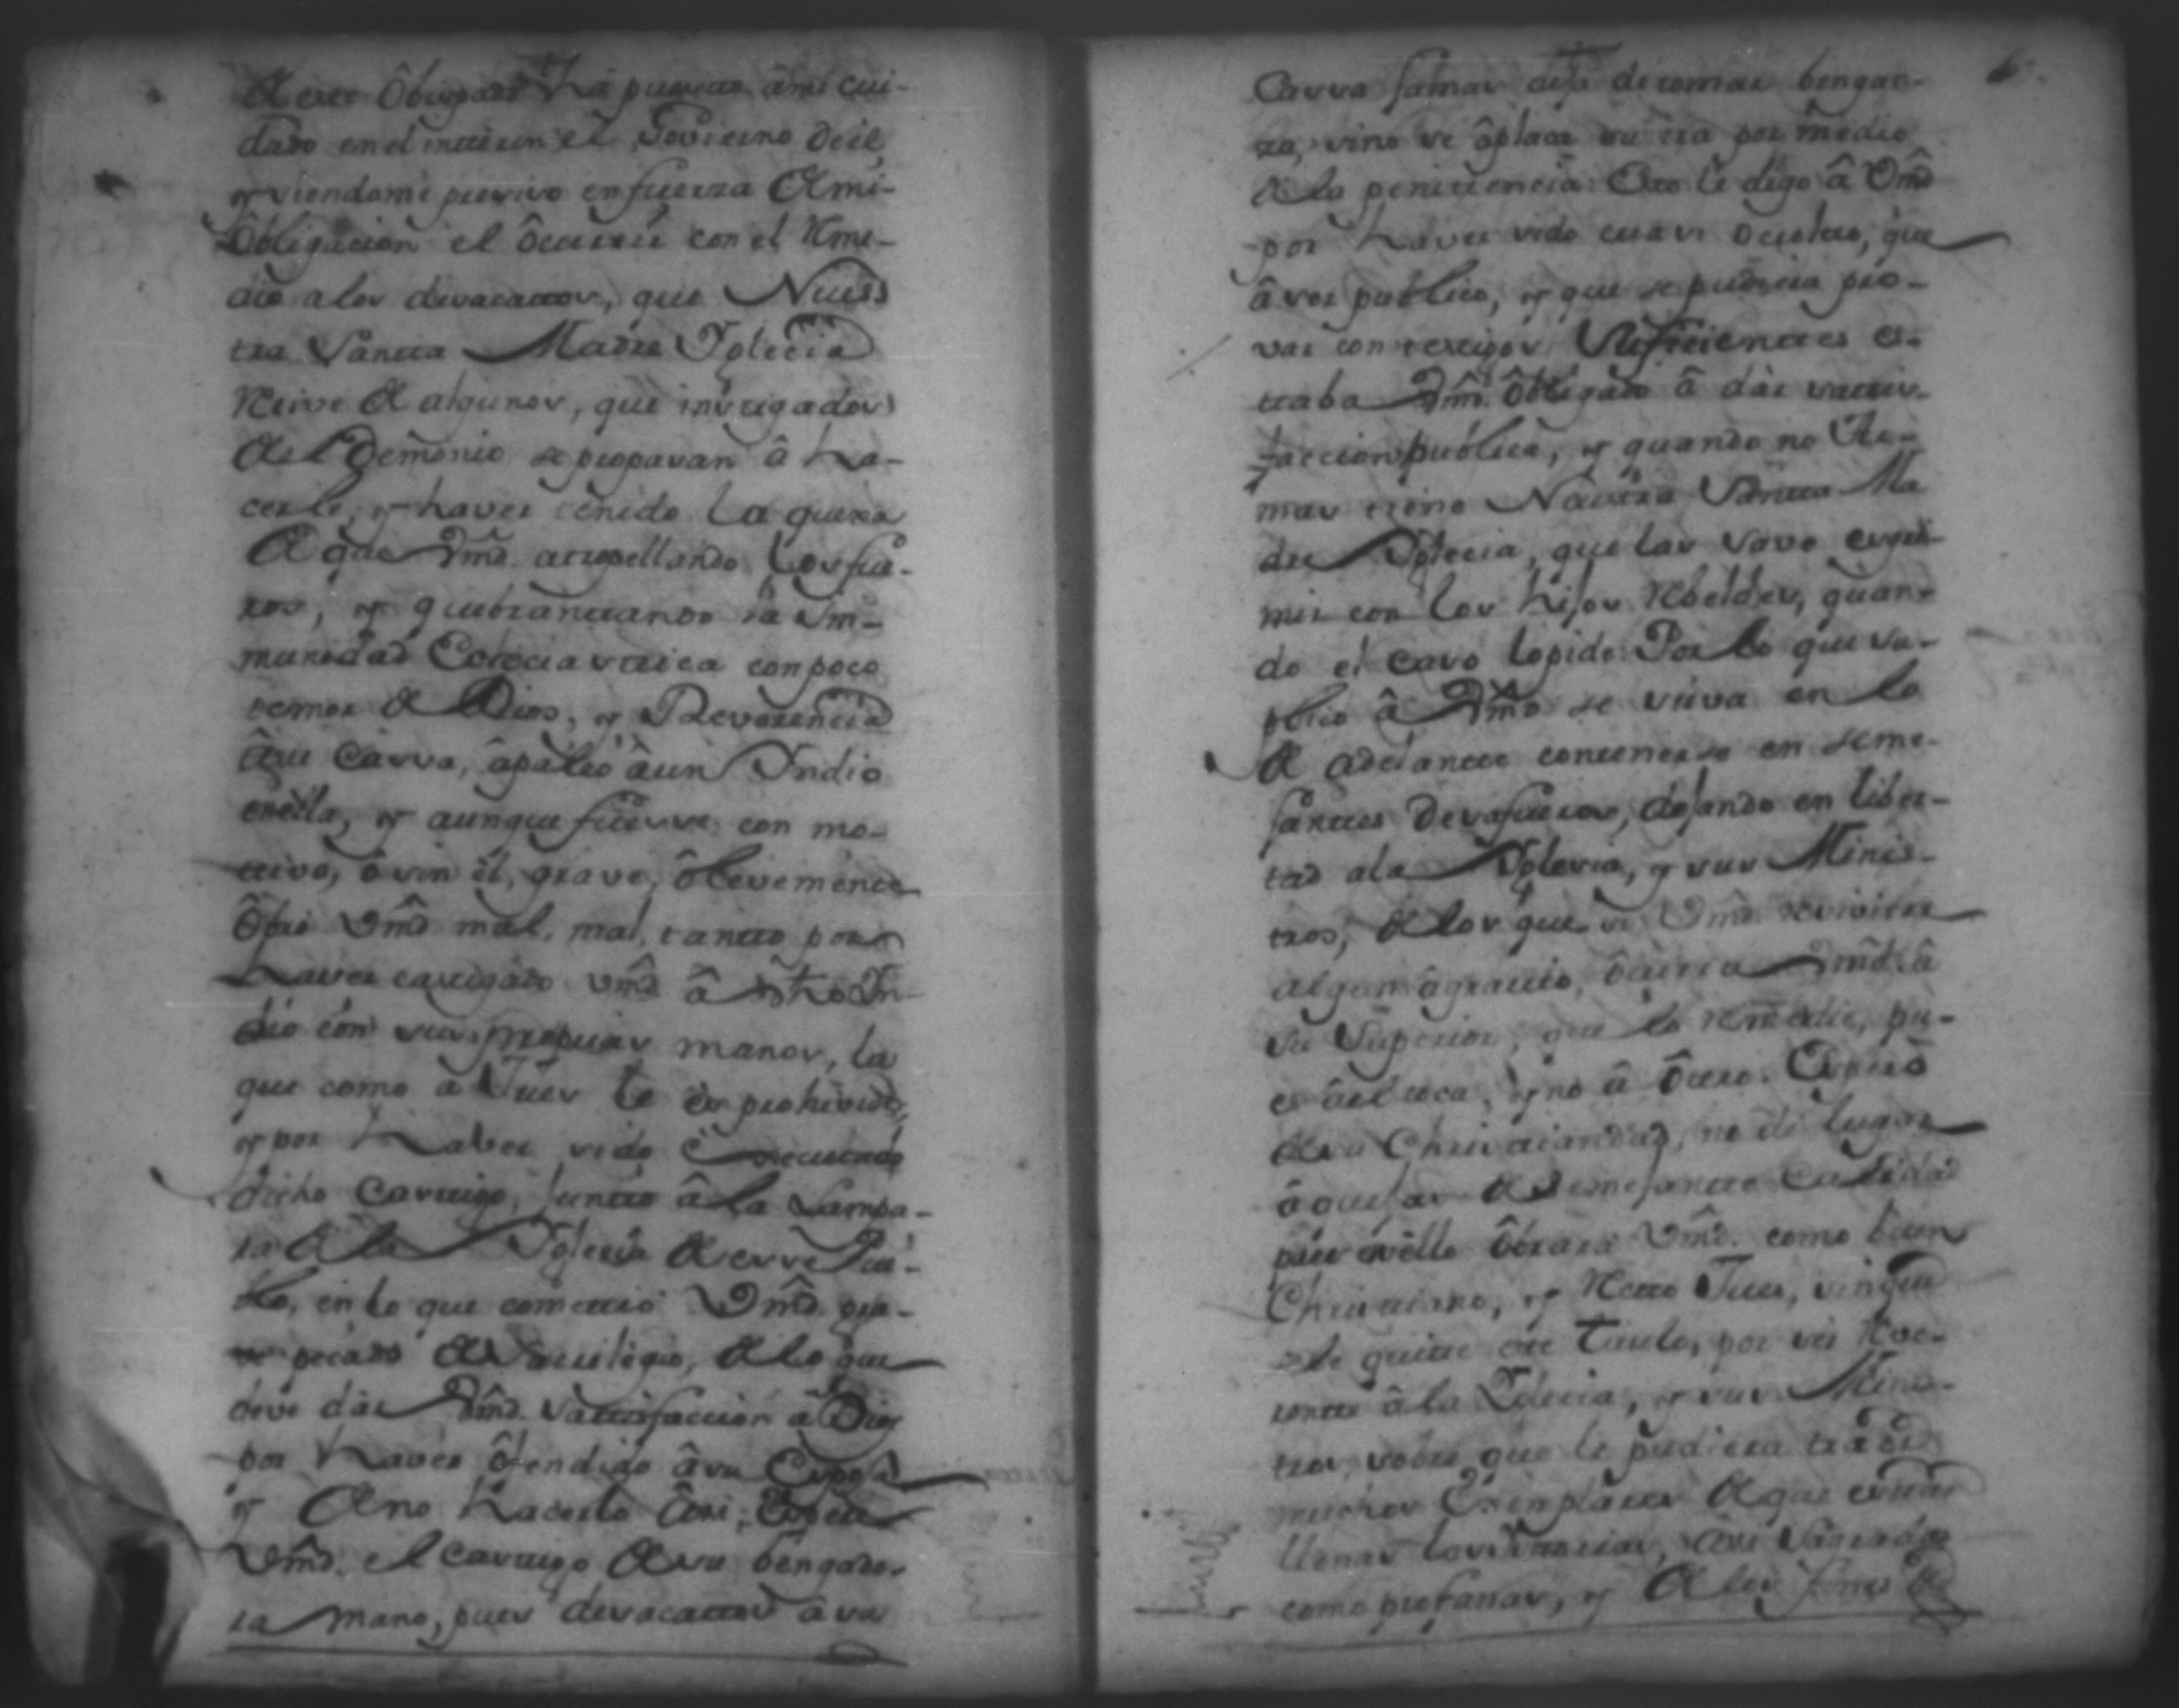 de este Obispado ha puesto â mi cui-
dado en el interin el Govierno de el,
y viendome preciso en fuerza de mi
Obligacion el Ocurrir con el Reme-
dio a los desacattos, que Nues
tra Santta Madre Yglecia
Recive de algunos, que instigados
del Demonio se propasan â ha-
cerle, y haver tenido la quexa
de que Vmd. atropellando los fue-
ros, y quebranttando la Ym-
munidad Eccleciasttica con poco
temor de Dios, y Reverencia
â su Cassa, âpaleó â un Yndio
en ella, y aunque fuesse con mo-
ttivo, ô sin el, grave, ô levemente
Obró Vmd. mal, mal, tantto por
haver castigado Vmd. â dicho Yn-
dio con sus propias manos, la
que como a Juez le es prohivido,
y por haber sido Executado
dicho Casttigo, Juntto â la Lampa-
ra de la Yglecia de esse Pue-
blo, en lo que comettió Vmd. gra-
ve pecado de Sacrilegio, de lo que
deve dar Vmd. Sattisfaccion â Dios
por haver ôfendido â su Esposa
y de no hacerlo Âsi, Espere
Vmd. el Casttigo de su bengado-
ra mano, pues desacattos â su
Cassa Jamas deja de tomar bengan-
za, sino se âplaca su ira por medio
de la penitencia: Esto le digo â Vmd.
por haver sido cuasi Ocultto, que
â ser publico, y que se pudiera pro-
var con testigos Suficienttes es-
ttaba Vmd. Obligado â dar sattis-
faccion publica, y quando no Ar-
mas tiene Nuestra Santta Ma
dre Yglecia, que las save esgri-
mir con los hijos Rebeldes, quan-
do el caso lo pide: Por lo que su-
plico â Vmd. se sirva en lo
de adelantte contenerse en seme-
janttes Desafueros, dejando en liber-
tad a la Yglesia, y sus Minis-
tros, de los que si Vmd. reciviere
algun âgravio, ocurra Vmd. â
su Superior, que lo remedie, pu-
es âel toca, y no â Ôtro. Espero
de su Christiandad, no dé lugar
â quejas de semejantte Calidad
pues en ello Obrará Vmd. como buen
Christtiano, y Rectto Juez, sin que
se le quite este Titulo, por ser Reve-
rentte â la Yglecia, y sus Minis-
tros, sobre que le pudiera traer
muchos Exemplares de que estan
llenas las Historias, assi Sagradas
como profanas, y de los fines de